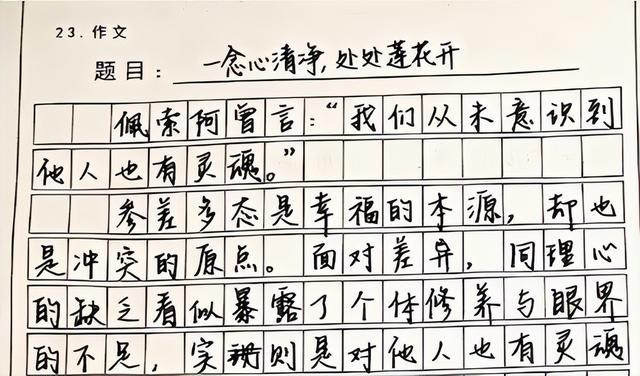 23.作文
题目：一念心清净，处处莲花开
佩索阿曾言：“我们从未意识到
他人也有灵魂。”
参差多态是幸福的本源，却也
是冲突的原点。面对差异，同理心
的缺乏看似暴露了个体修养与眼界
的不足，实则是对他人也有灵魂